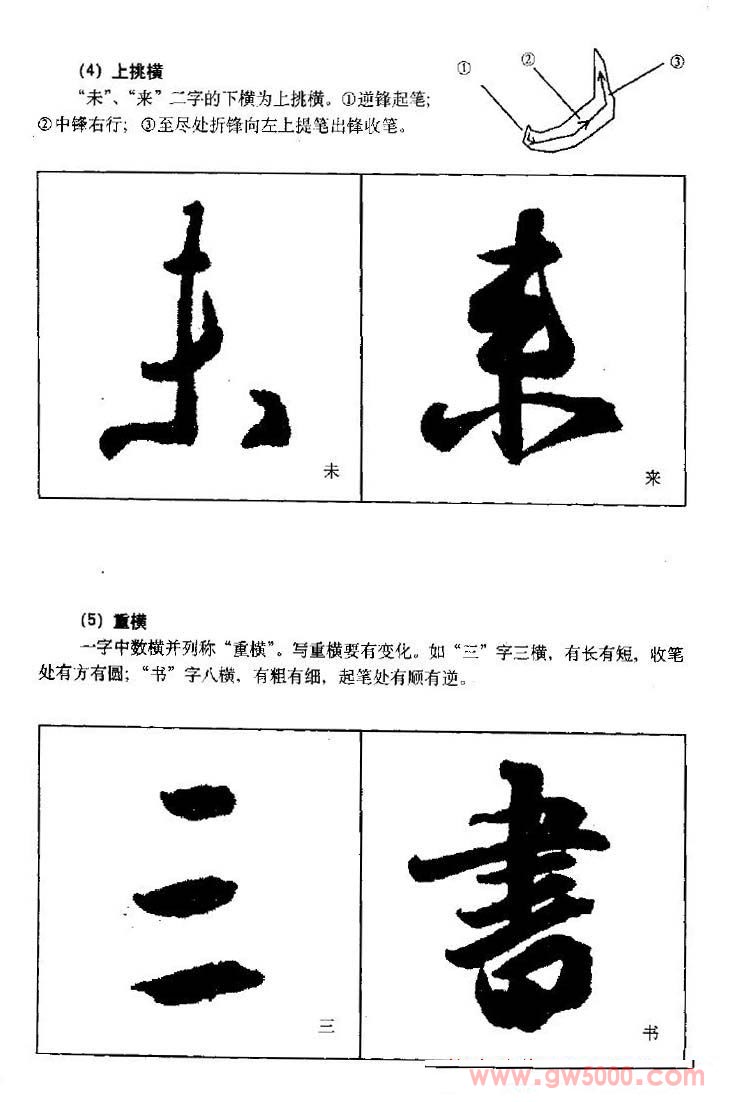 (4) 上挑横
“未”、“来”二字的下横为上挑横。①逆锋起笔;
②中锋右行; ③至尽处折锋向左上提笔出锋收笔。
① ② ③
未 来
未 来
(5) 重横
一字中数横并列称“重横”。写重横要有变化。如“三”字三横, 有长有短, 收笔
处有方有圆; “书”字八横, 有粗有细, 起笔处有顺有逆。
三 書
三 书
www.gw5000.com